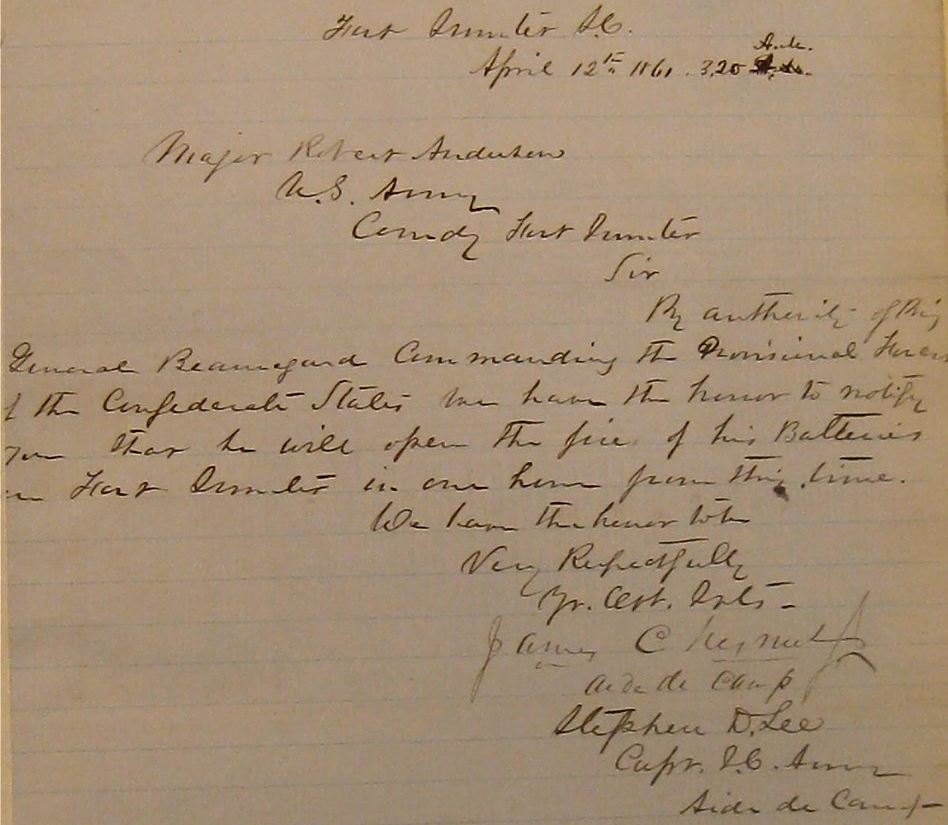 Fort Sumter S.C.
A.M.
April 12th 1861. 3.20
Major Robert Anderson
U.S. Army
Comdg Fort Sumter
Sir
By authority of Brig
General Beauregard Commanding the Provisional Forces
of the Confederate States we have the honor to notify
you that he will open the fire of his Batteries
on Fort Sumter in one hour from this time.
We have the honor to be
Very Respectfully
Yr. Obt. Svts -
James Chesnut Jr
Aide de Camp
Stephen D. Lee
Capt. S.C. Army
Aide de Camp